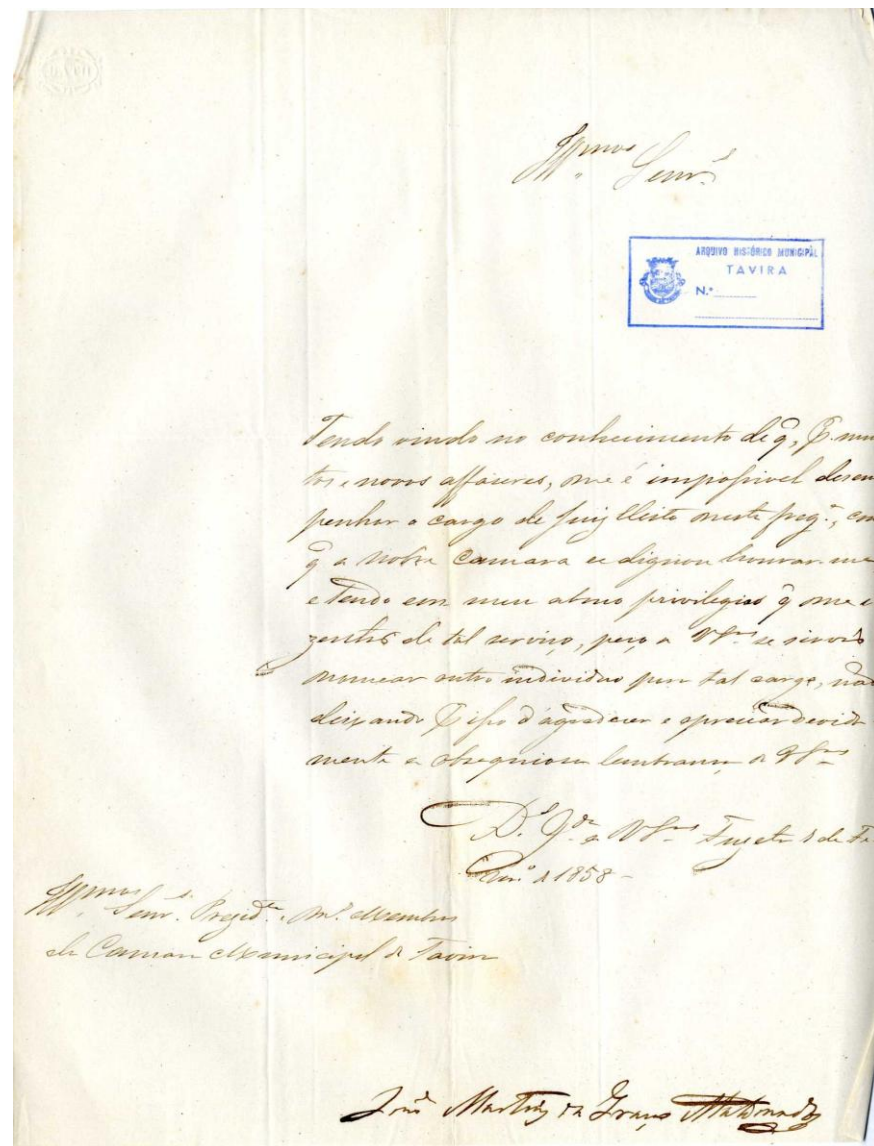 Illmos Senrs
ARQUIVO HISTÓRICO MUNICIPAL
TAVIRA
N.º
Tendo vindo no conhecimento de q, P. mui
tos e novos affaseres, me é impossivel desem
penhar o cargo de Juiz Eleito nesta freg.ª, com
q a nobre Camara se dignou honrar-me
e tendo em meu abono privilegios q me
zentão de tal serviço, peço a VSras se sirvão
nomear outro individuo para tal cargo, não
deixando P isso d'agradecer e apreciar devida
mente a obsequiosa lembrança de VSras
D.s G.de a VSras Fuzeta de Fe
de 1858 -
Illmos Senrs. Presid.e e M.s Membros
da Camara Municipal de Tavira
José Martins da Graça Maldonado